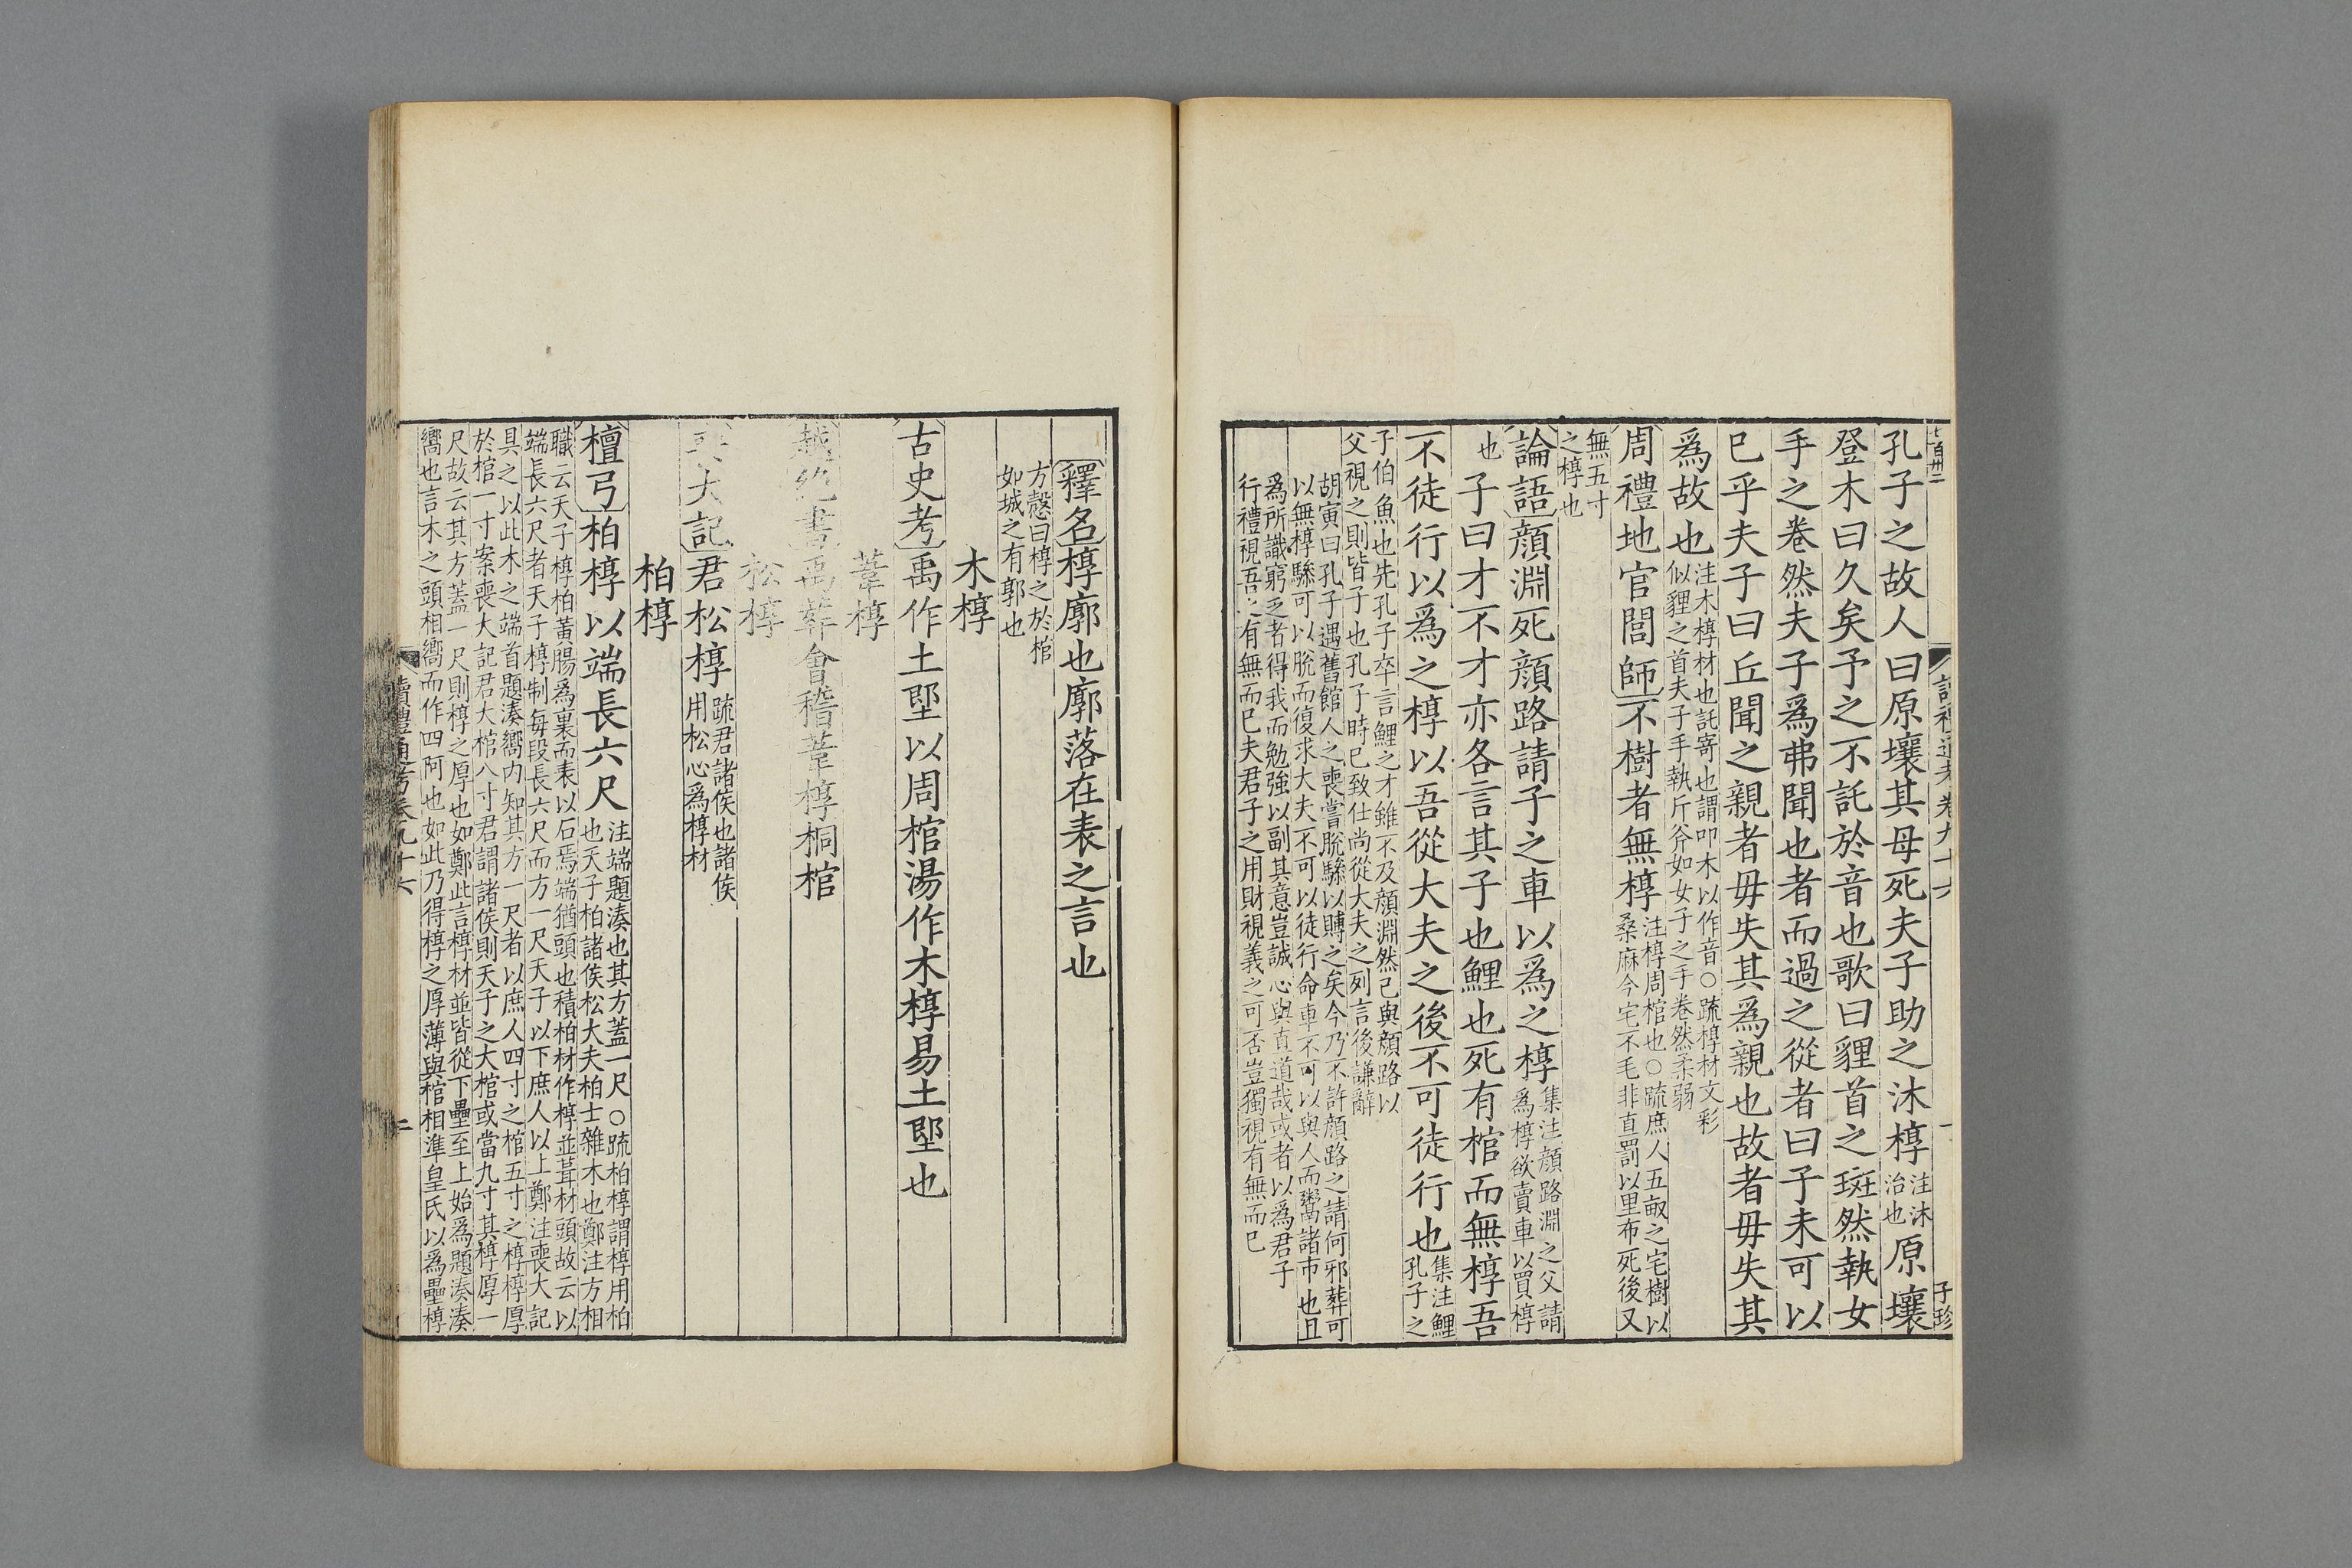 七百卅二
讀禮通考 卷九十六 一 子珍
孔子之故人曰原壤其母死夫子助之沐椁注沐治也原壤
登木曰久矣予之不託於音也歌曰貍首之斑然執女
手之卷然夫子爲弗聞也者而過之從者曰子未可以
已乎夫子曰丘聞之親者毋失其爲親也故者毋失其
爲故也注木椁材也託寄也謂叩木以作音○疏椁材文彩
似貍之首夫子手執斤斧如女子之手卷然柔弱
周禮地官閭師不樹者無椁注椁周棺也○疏庶人五畝之宅樹以
桑麻今宅不毛非直罰以里布死後又
無五寸
之椁也
論語顔淵死顔路請子之車以爲之椁集注顔路淵之父請
爲椁欲賣車以買椁
也子曰才不才亦各言其子也鯉也死有棺而無椁吾
不徒行以爲之椁以吾從大夫之後不可徒行也集注鯉
孔子之
子伯魚也先孔子卒言鯉之才雖不及顔淵然己與顔路以
父視之則皆子也孔子時已致仕尚從大夫之列言後謙辭
胡寅曰孔子遇舊館人之喪嘗脫驂以賻之矣今乃不許顔路之請何邪葬可
以無椁驂可以脫而復求大夫不可以徒行命車不可以與人而鬻諸市也且
爲所識窮乏者得我而勉強以副其意豈誠心與直道哉或者以爲君子
行禮視吾之有無而已夫君子之用財視義之可否豈獨視有無而已
釋名椁廓也廓落在表之言也
方慤曰椁之於棺
如城之有郭也
木椁
古史考禹作土堲以周棺湯作木椁易土堲也
葦椁
越絶書禹葬會稽葦椁桐棺
松椁
喪大記君松椁疏君諸侯也諸侯
用松心爲椁材
柏椁
檀弓柏椁以端長六尺注端題湊也其方蓋一尺○疏柏椁謂椁用柏
也天子柏諸侯松大夫柏士雜木也鄭注方相
職云天子椁柏黃腸爲裏而表以石焉端猶頭也積柏材作椁並葺材頭故云以
端長六尺者天子椁制每段長六尺而方一尺天子以下庶人以上鄭注喪大記
具之以此木之端首題湊嚮内知其方一尺者以庶人四寸之棺五寸之椁椁厚
於棺一寸案喪大記君大棺八寸君謂諸侯則天子之大棺或當九寸其椁厚一
尺故云其方蓋一尺則椁之厚也如鄭此言椁材並皆從下壘至上始爲題湊湊
嚮也言木之頭相嚮而作四阿也如此乃得椁之厚薄與棺相準皇氏以爲壘椁
讀禮通考卷九十六 二